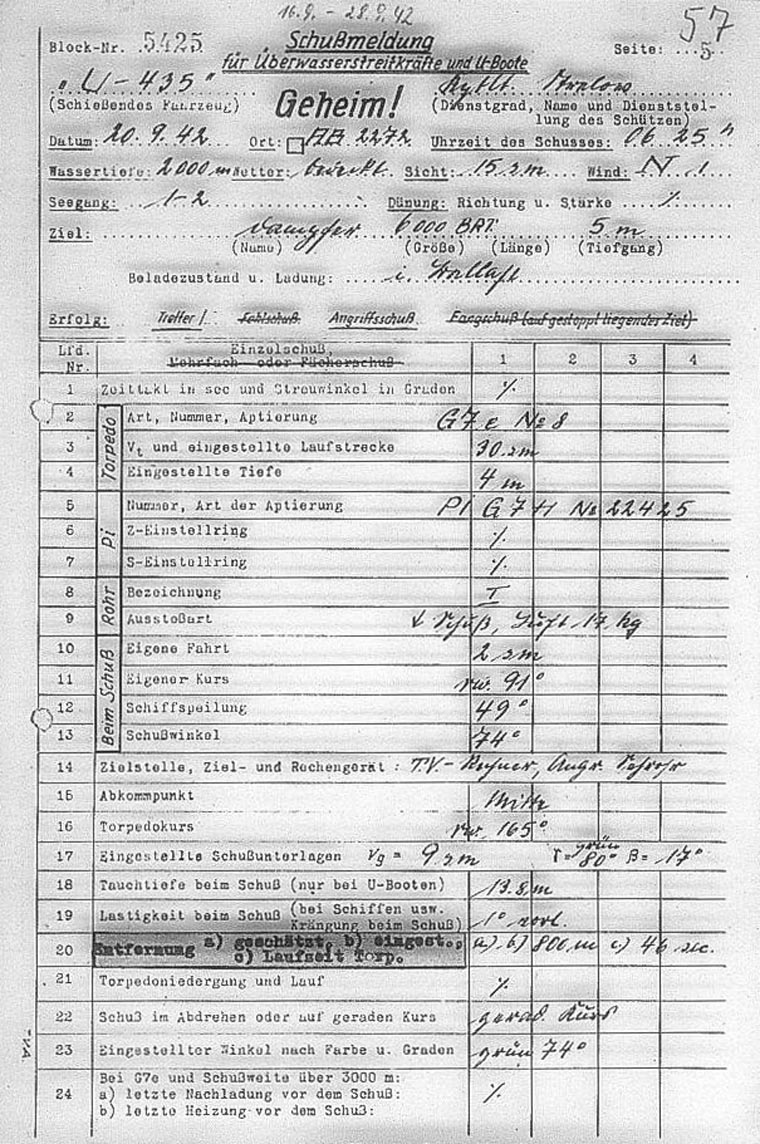 16.9. - 28.9.42
57
Block-Nr. 5425 Schußmeldung Seite: 5
für Überwasserstreitkräfte und U-Boote
"U-435" Kptlt. Strelow
(Schießendes Fahrzeug) Geheim! (Dienstgrad, Name und Dienststel-
lung des Schützen)
Datum: 20.9.42 Ort: □ AB 2272 Uhrzeit des Schusses: 06 25
Wassertiefe: 2000 m Wetter: bedeckt Sicht: 15 sm Wind: N 1
Seegang: 1-2 Dünung: Richtung u. Stärke ./.
Ziel: Dampfer 6000 BRT. 5 m
(Name) (Größe) (Länge) (Tiefgang)
Beladezustand u. Ladung: i. Ballast
Erfolg: Treffer / Fehlschuß Angriffsschuß Fangschuß (auf gestoppt liegendes Ziel)
Lfd. Nr. Einzelschuß, 1 2 3 4
Mehrfach- oder Fächerschuß
1 Zeittakt in sec und Streuwinkel in Graden ./.
Torpedo
2 Art, Nummer, Aptierung G7e No 8
3 Vt und eingestellte Laufstrecke 30 sm
4 Eingestellte Tiefe 4 m
Pi
5 Nummer, Art der Aptierung PI G7H No 22425
6 Z-Einstellring ./.
7 S-Einstellring ./.
Rohr
8 Bezeichnung I
9 Ausstoßart Schuß, Luft 17 kg
Beim Schuß
10 Eigene Fahrt 2 sm
11 Eigener Kurs rw. 91°
12 Schiffspeilung 49°
13 Schußwinkel 74°
14 Zielstelle, Ziel- und Rechengerät: T.V.- Rechner, Angr. Sehrohr
15 Abkommpunkt Mitte
16 Torpedokurs rw. 165°
17 Eingestellte Schußunterlagen Vg = 9 sm γ = grün 80° β = 17°
18 Tauchtiefe beim Schuß (nur bei U-Booten) 13.8 m
19 Lastigkeit beim Schuß (bei Schiffen usw. Krängung beim Schuß) 1° vorl.
20 Entfernung a) geschätzt, b) eingest., a) b) 800 m c) 46 sec.
c) Laufzeit Torp.
21 Torpedoniedergang und Lauf ./.
22 Schuß im Abdrehen oder auf geraden Kurs gerad. Kurs
23 Eingestellter Winkel nach Farbe u. Graden grün 74°
24 Bei G7e und Schußweite über 3000 m:
a) letzte Nachladung vor dem Schuß: ./.
b) letzte Heizung vor dem Schuß: